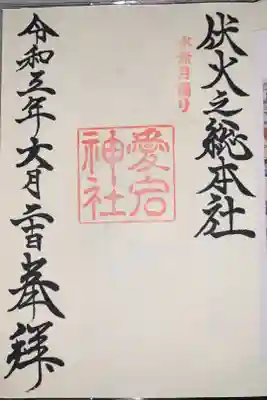 水無月詣り
伏火之総本社
愛宕
神社
令和三年六月二十日奉拝